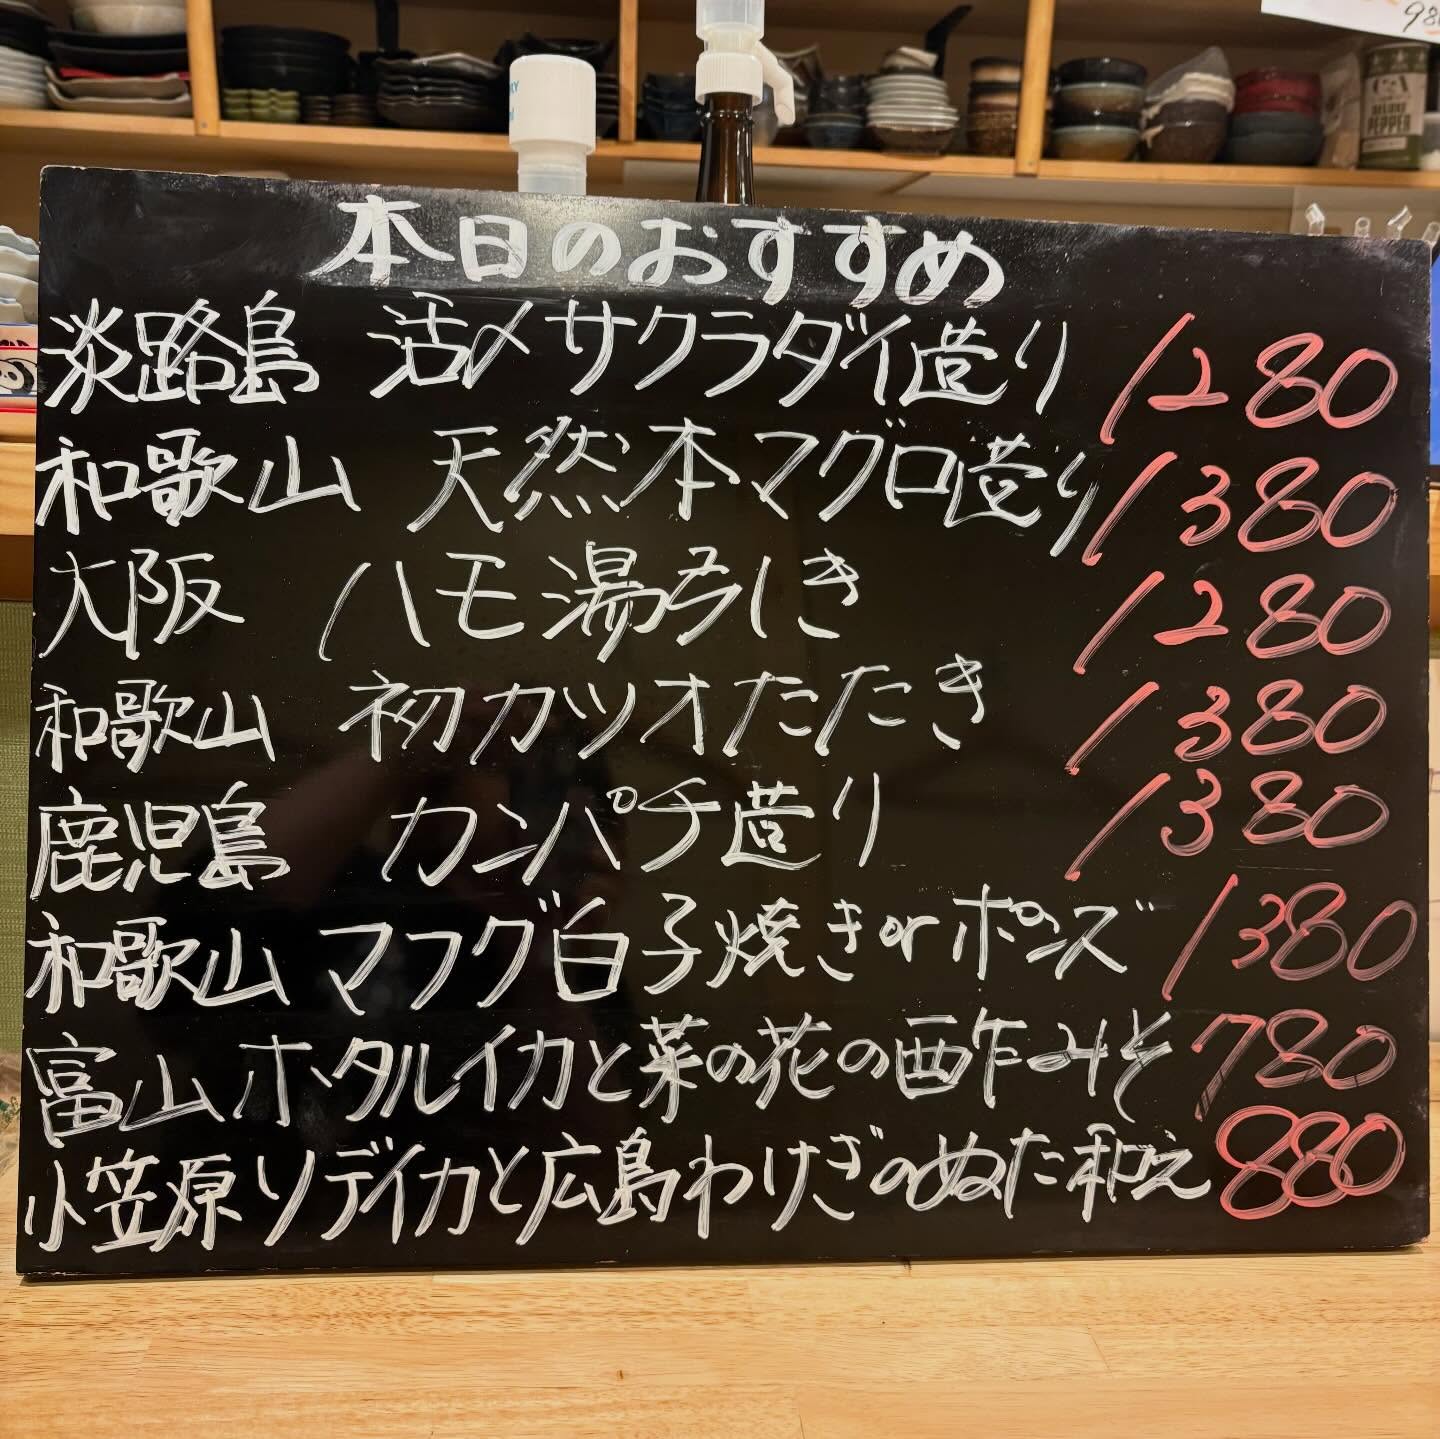 本日のおすすめ
淡路島 活〆サクラダイ造り 1280
和歌山 天然本マグロ造り 1380
大阪 ハモ湯引き 1280
和歌山 初カツオたたき 1380
鹿児島 カンパチ造り 1380
和歌山 マフグ白子焼きorポンズ 1380
富山ホタルイカと菜の花の酢みそ 780
小笠原ソデイカと広島わけぎのぬた和え 880
DELUXE
PEPPER